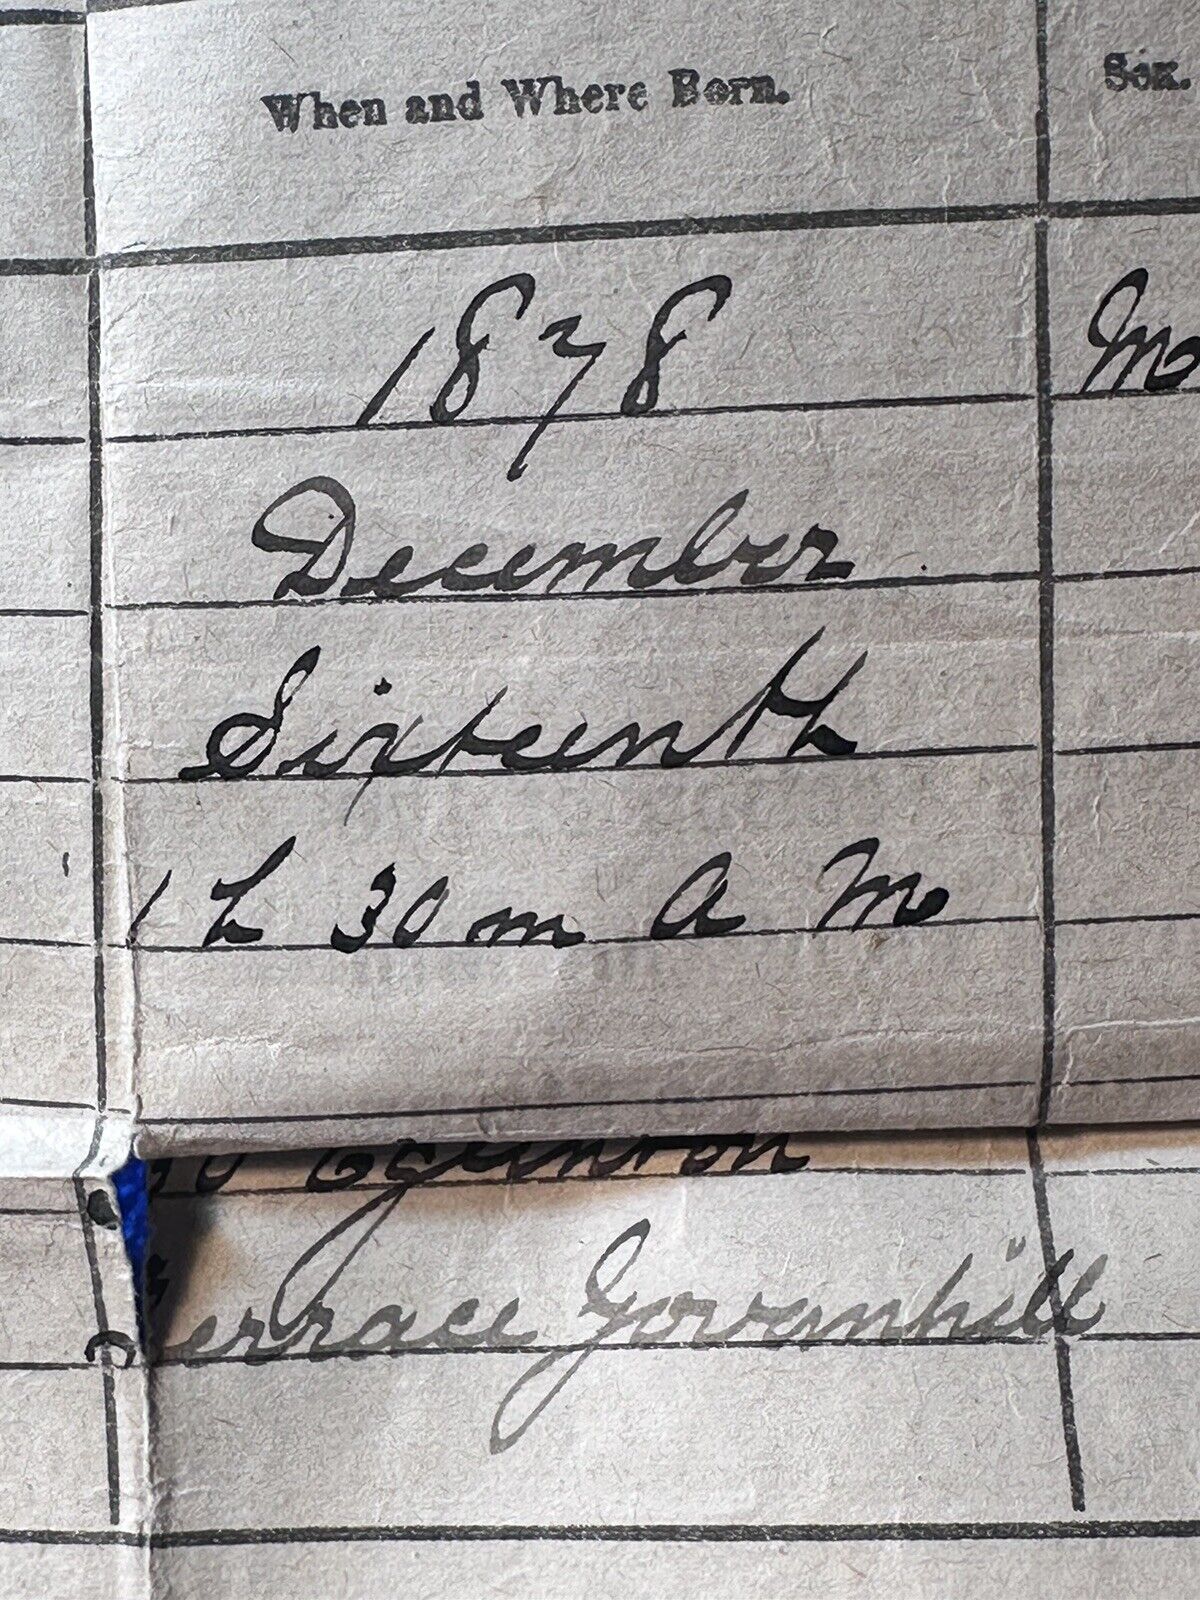 When and Where Born.
Sex.
1878
M
December
Sixteenth
1 h 30 m A M
Eglinton
Terrace Govanhill